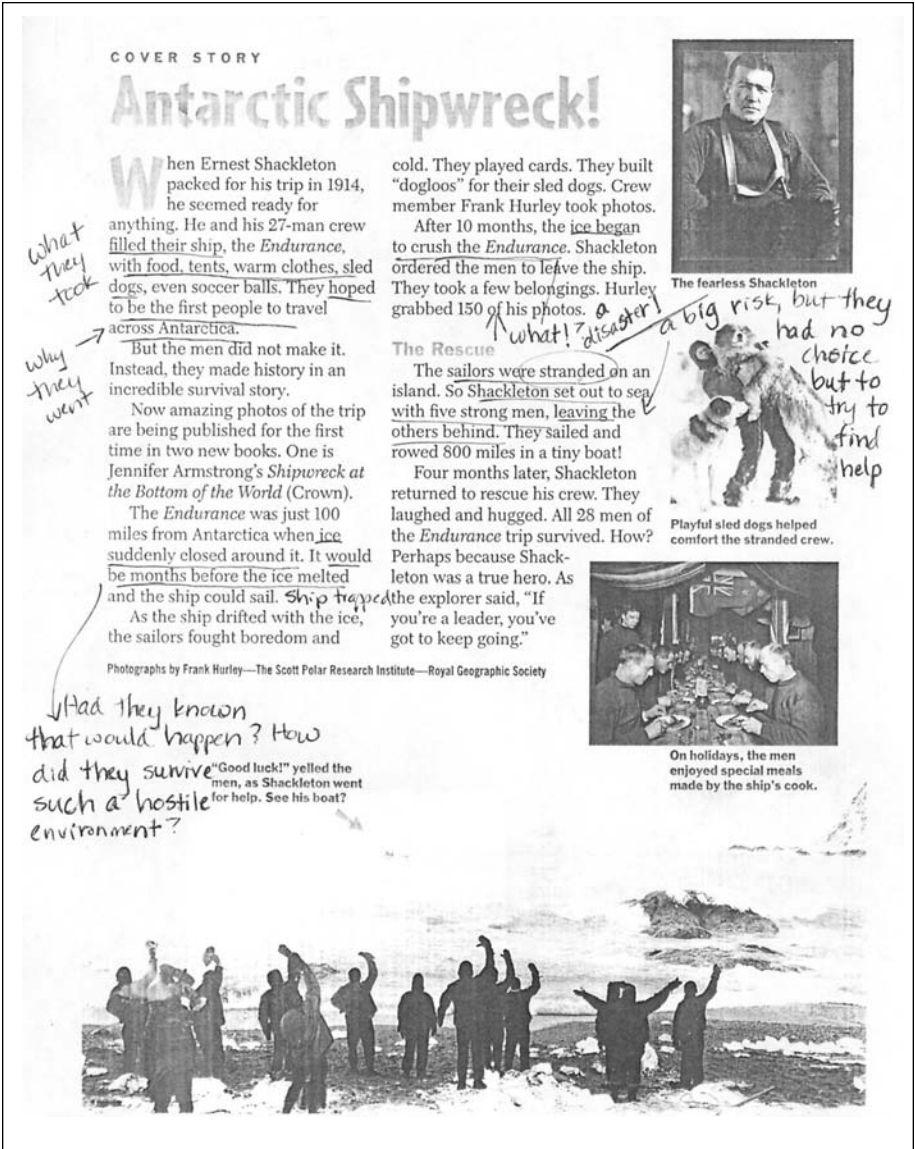 COVER STORY
Antarctic Shipwreck!
When Ernest Shackleton
packed for his trip in 1914,
he seemed ready for
anything. He and his 27-man crew
filled their ship, the Endurance,
with food, tents, warm clothes, sled
dogs, even soccer balls. They hoped
to be the first people to travel
across Antarctica.
But the men did not make it.
Instead, they made history in an
incredible survival story.
Now amazing photos of the trip
are being published for the first
time in two new books. One is
Jennifer Armstrong's Shipwreck at
the Bottom of the World (Crown).
The Endurance was just 100
miles from Antarctica when ice
suddenly closed around it. It would
be months before the ice melted
and the ship could sail.
Ship trapped
As the ship drifted with the ice,
the sailors fought boredom and
what
they
took
why
they
went
cold. They played cards. They built
"dogloos" for their sled dogs. Crew
member Frank Hurley took photos.
After 10 months, the ice began
to crush the Endurance. Shackleton
ordered the men to leave the ship.
They took a few belongings. Hurley
grabbed 150 of his photos.
what!?
a
disaster!
The Rescue
The sailors were stranded on an
island. So Shackleton set out to sea
with five strong men, leaving the
others behind. They sailed and
rowed 800 miles in a tiny boat!
Four months later, Shackleton
returned to rescue his crew. They
laughed and hugged. All 28 men of
the Endurance trip survived. How?
Perhaps because Shack-
leton was a true hero. As
the explorer said, "If
you're a leader, you've
got to keep going."
The fearless Shackleton
a big risk, but they
had no
choice
but to
try to
find
help
Playful sled dogs helped
comfort the stranded crew.
On holidays, the men
enjoyed special meals
made by the ship's cook.
Photographs by Frank Hurley—The Scott Polar Research Institute—Royal Geographic Society
Had they known
that would happen? How
did they survive
such a hostile
environment?
"Good luck!" yelled the
men, as Shackleton went
for help. See his boat?